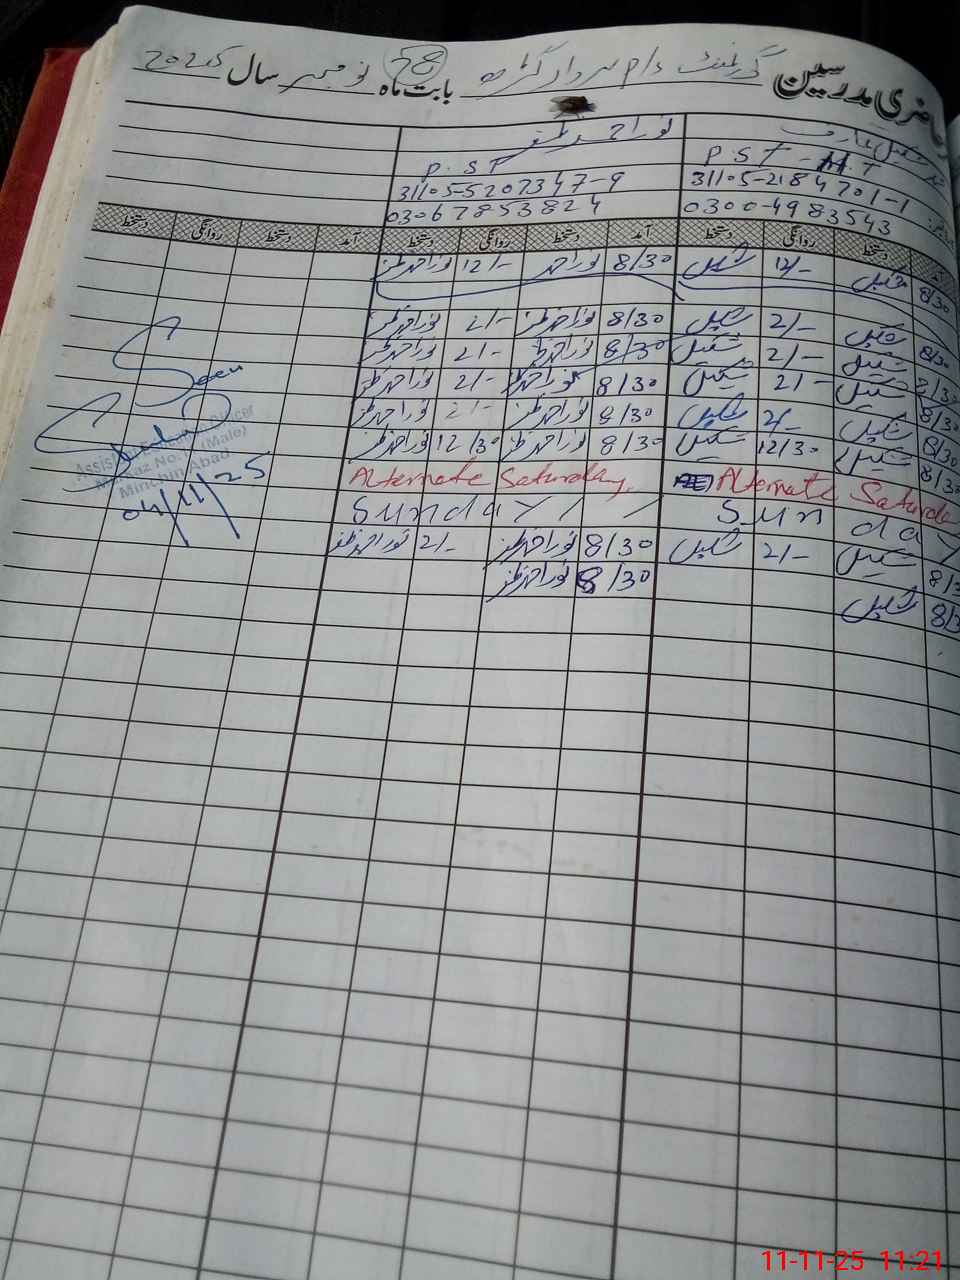 حاضری مدرسین گورنمنٹ بابت ماہ 78 نومبر سال 2025
نور احمد ظفر
P.ST - M.T P.ST
31105-2184701-1 31105-5207347-9
0300-4983543 03067853824
آمد دستخط روانگی دستخط آمد دستخط روانگی دستخط آمد دستخط روانگی دستخط
8/30 شکیل 12/- شکیل 8/30 نور احمد 12/- نور احمد ظفر
8/30 شکیل 2/- شکیل 8/30 نور احمد ظفر 2/- نور احمد ظفر
8/30 شکیل 2/- شکیل 8/30 نور احمد ظفر 2/- نور احمد ظفر
8/30 شکیل 2/- شکیل 8/30 نور احمد ظفر 2/- نور احمد ظفر
8/30 شکیل 2/- شکیل 8/30 نور احمد ظفر 2/- نور احمد ظفر
8/30 شکیل 12/30 شکیل 8/30 نور احمد ظفر 12/30 نور احمد ظفر
Alternate Saturday Alternate Saturday
Sunday Sunday
8/30 شکیل 2/- شکیل 8/30 نور احمد ظفر 2/- نور احمد ظفر
8/30 شکیل 8/30 نور احمد ظفر
Seen
Assistant Education Officer
Markaz No: 1 (Male)
Minchin Abad
04/11/25
11-11-25 11:21